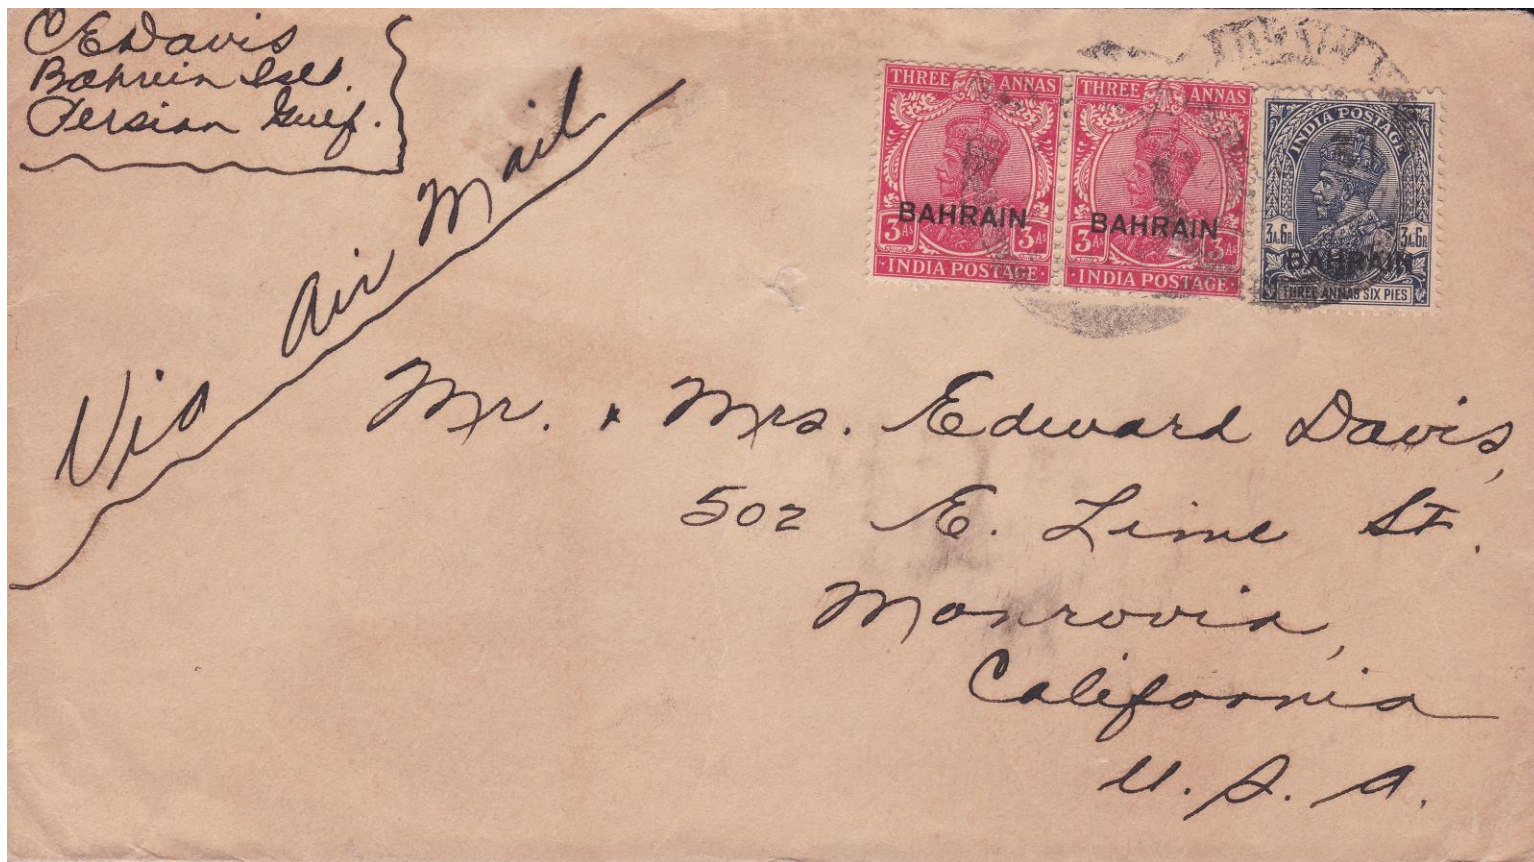 C E Davis
Bahrein Isld.
Persian Gulf.
Via Air Mail
THREE ANNAS
BAHRAIN
3As 3As
INDIA POSTAGE
THREE ANNAS
BAHRAIN
3As 3As
INDIA POSTAGE
INDIA POSTAGE
3A.6P. 3A.6P.
BAHRAIN
THREE ANNAS SIX PIES
Mr. & Mrs. Edward Davis,
502 E. Lime St.
Monrovia,
California
U. S. A.